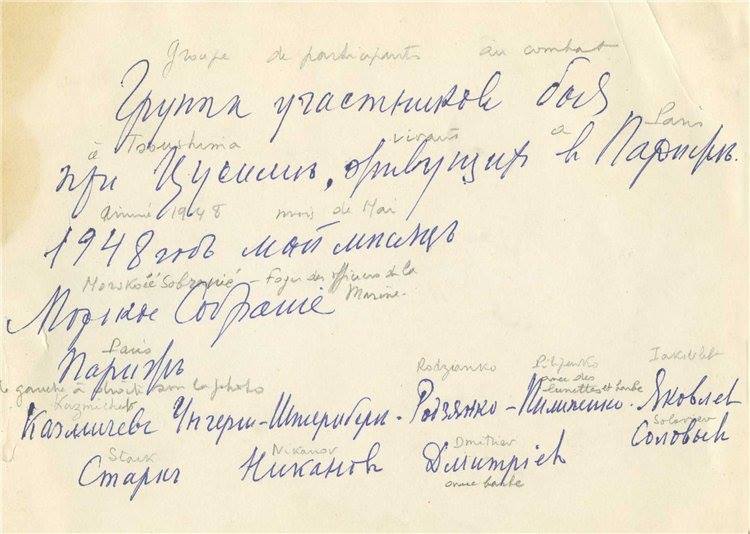 Groupe de participants au combat
Группа участников боя
à Tsoushima vivants à Paris
при Цусимѣ, живущих в Парижѣ.
année 1948 mois de Mai
1948 годъ май мѣсяцъ
Morskoïé Sobranié - Foyer des officiers de la Marine.
Морское Собраніе
Paris
Парижъ
de gauche à droite sur la photo
Kazmichef Rodzianko Pilipenko avec des lunettes et barbe Iakovlef
Казмичевъ Унгернъ-Штернбергъ - Родзянко - Пилипенко - Яковлев
Soloviev
Соловьев
Stark Nikanov Dmitriev
Старкъ Никанов Дмитріев
avec barbe